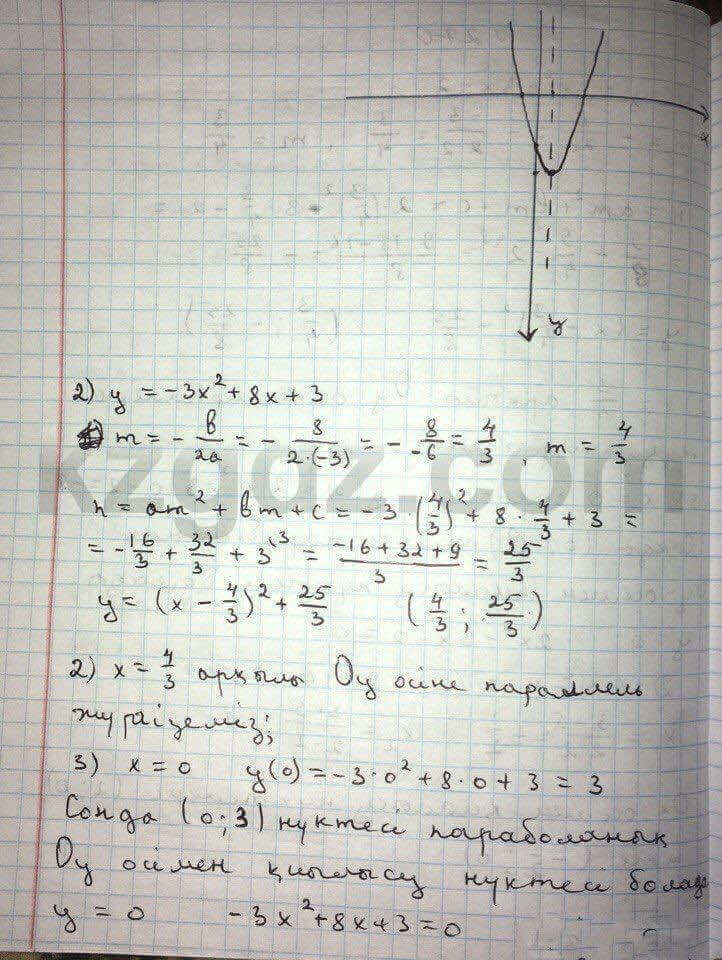 x
y
2) y = -3x² + 8x + 3
m = - в/2a = - 8/(2·(-3)) = - 8/-6 = 4/3 , m = 4/3
kzgdz.com
n = am² + вm + c = -3 · (4/3)² + 8 · 4/3 + 3 =
= -16/3 + 32/3 + 3^3 = (-16 + 32 + 9)/3 = 25/3
y = (x - 4/3)² + 25/3 (4/3 ; 25/3)
2) x = 4/3 арқылы Oy осіне параллель
жүргіземіз;
3) x = 0 y(0) = -3·0² + 8·0 + 3 = 3
Сонда (0; 3) нүктесі параболаның
Oy осімен қиылысу нүктесі болады
y = 0 -3x² + 8x + 3 = 0